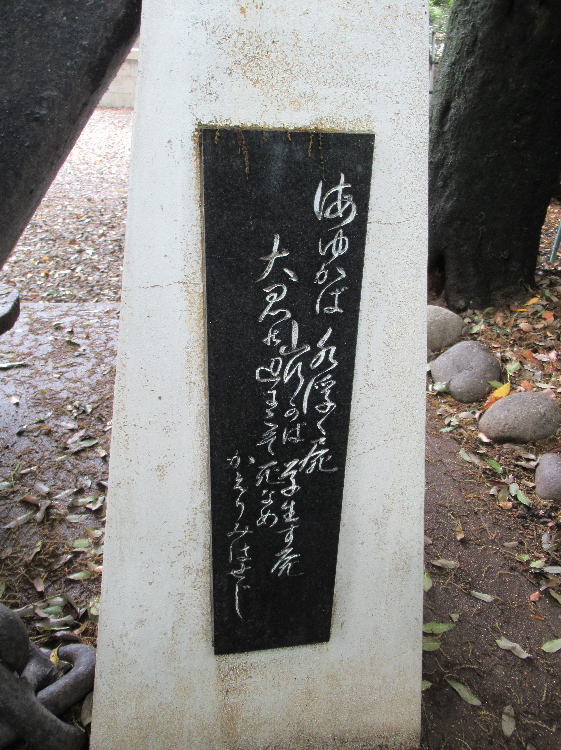 海ゆかば 水浮く屍
山行かば 草生す屍
大君の辺にこそ死なめ
かえりみはせじ